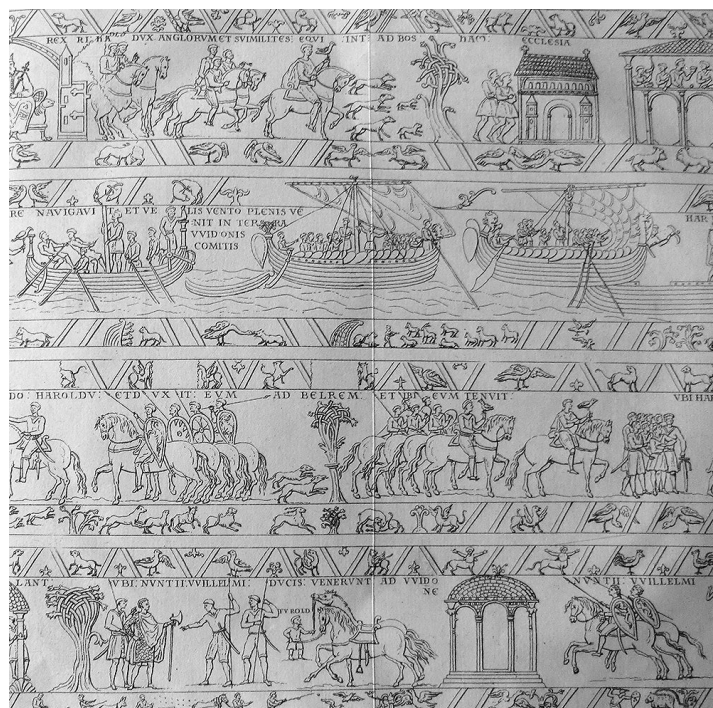 REX DVX ANGLORVM ET SVI MILITES: EQVI :INT: AD BOS HAM: ECCLESIA
RE NAVIGAVIT: ET VE LIS VENTO PLENIS VE
:NIT IN TERRA
VVIDONIS
COMITIS
HAR
DO: HAROLDV: ETDVXIT: EVM AD BELREM: ET VBI EVM TENVIT: VBI HAR
LANT: VBI: NVNTII: VVILLELMI: DVCIS: VENERVNT: AD VVIDO
NE
TVROLD
NVNTII: VVILLELMI